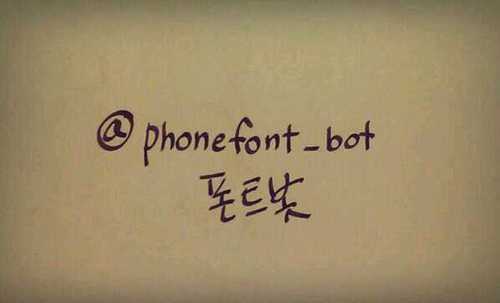 @phonefont_bot
폰트봇